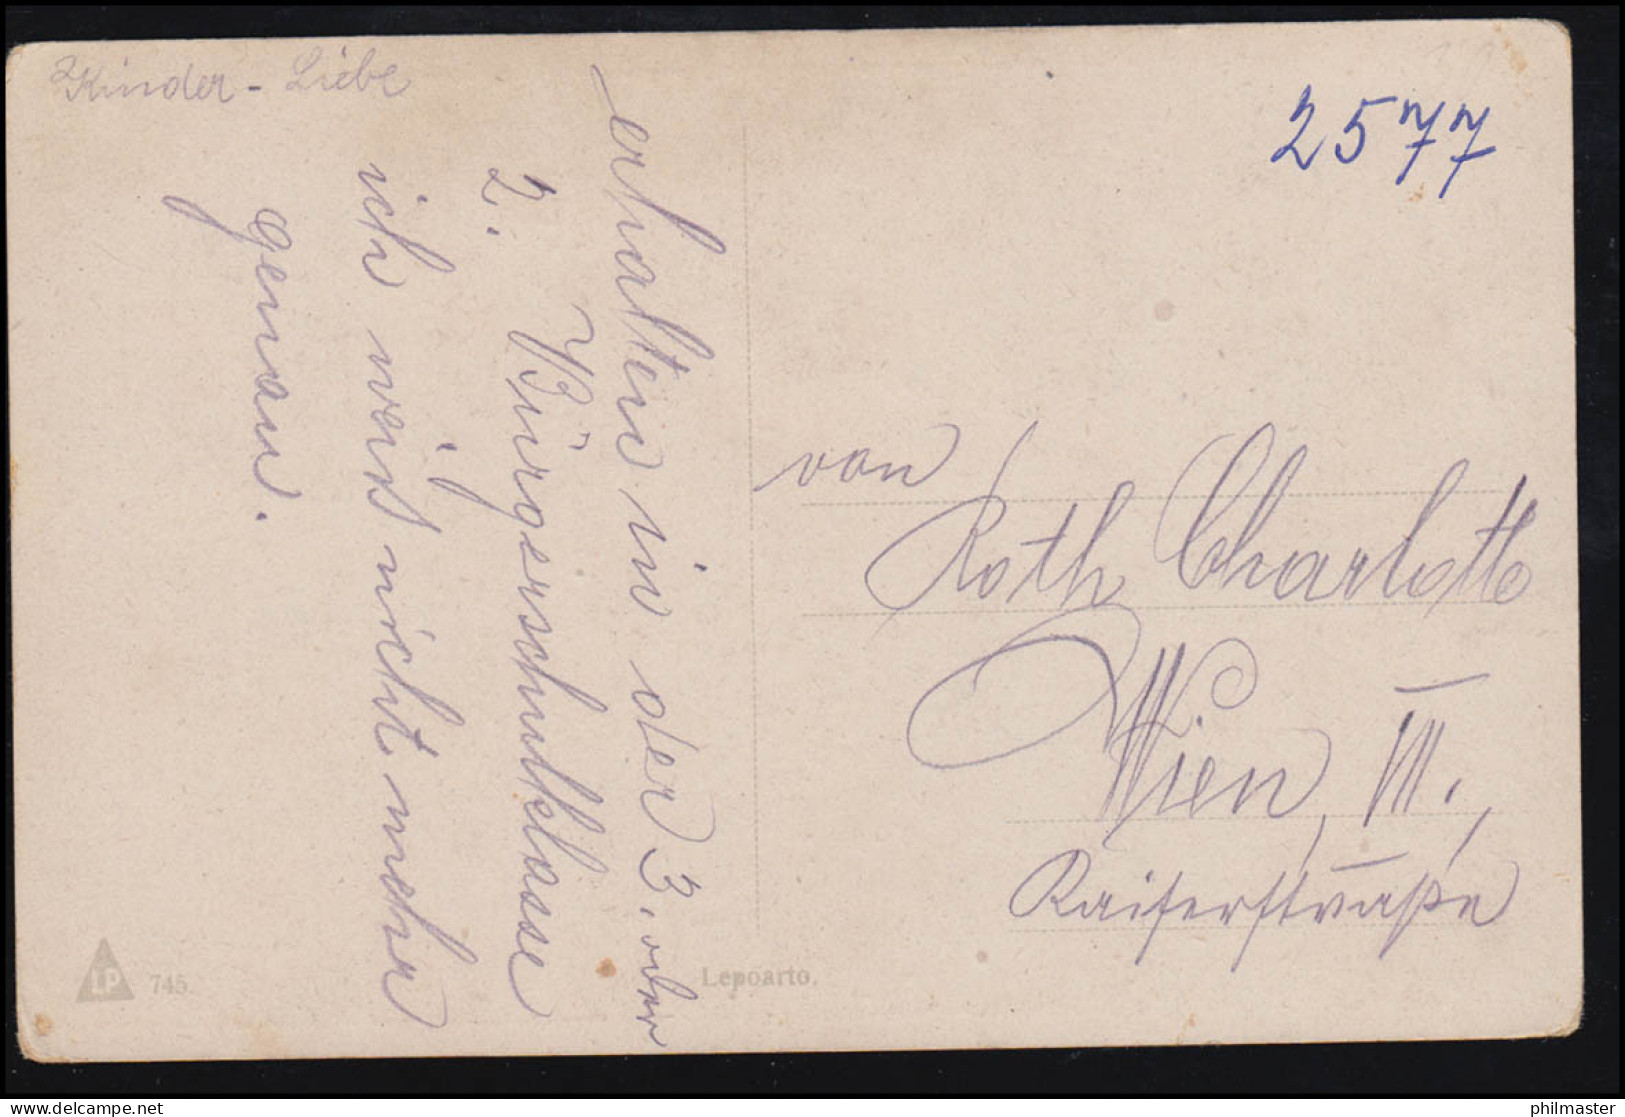 Kinder - Liebe
2577
erhalten in der 3. oder
2. Bürgerschulklasse
ich weiß nicht mehr
genau.
von
Roth Charlotte
Wien, VII.,
Kaiserstraße
LP 745.
Lepoarto.
delcampe.net
philmaster